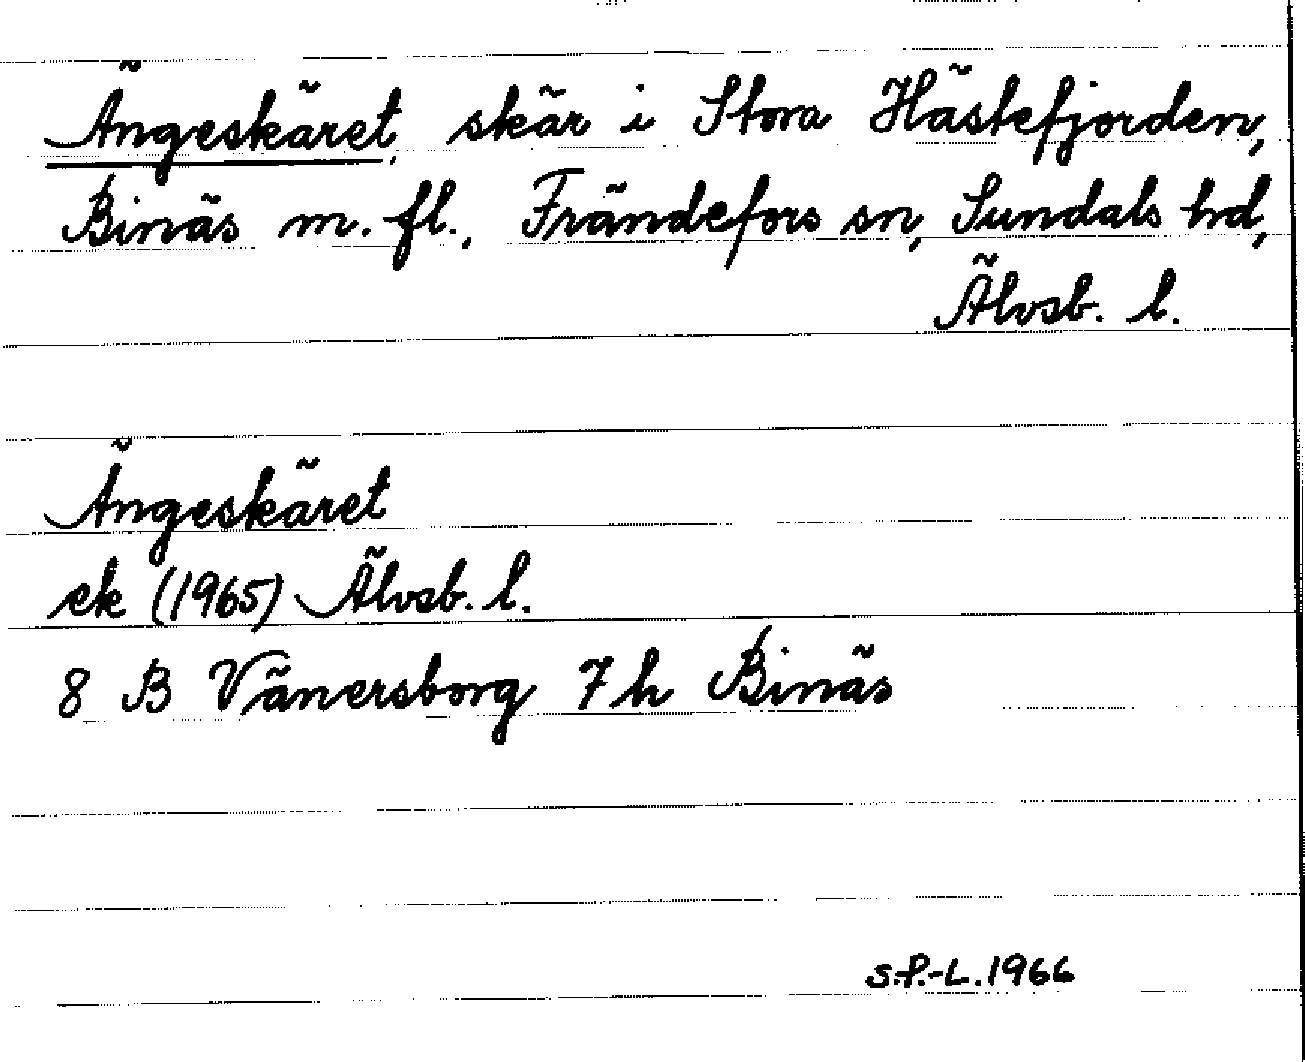 Ängeskäret, skär i Stora Hästefjorden,
Binäs m. fl., Frändefors sn, Sundals hd,
Älvsb. l.
Ängeskäret
ek (1965) Älvsb. l.
8 B Vänersborg 7 h Binäs
S.P.-L. 1966